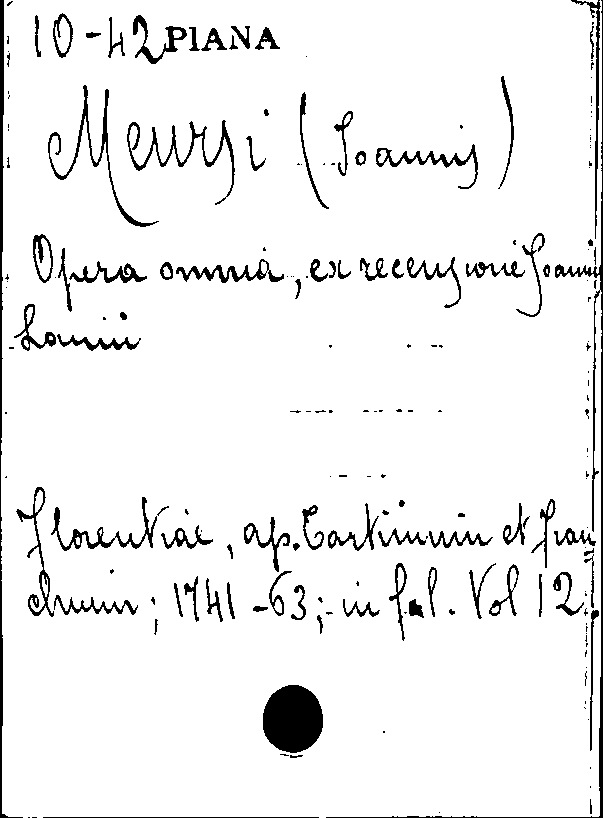 10-42 PIANA
Meursi (Joannis)
Opera omnia, ex recensione Joannis
Lamii
Florentiae, ap. Tartinium et Fran
chium; 1741-63; in fol. Vol 12.